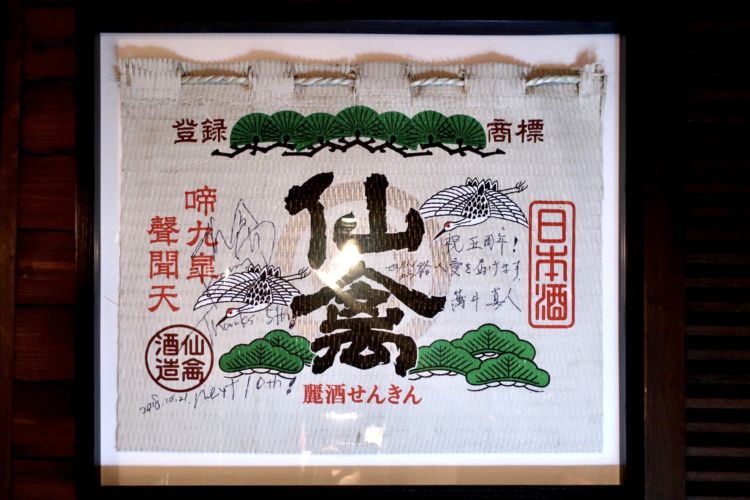 登録 商標
日本酒
仙禽
啼九皐
聲聞天
祝五周年!
愛を届けます
薄井真人
Thanks 5th
仙禽
酒造
麗酒せんきん
next 10th!
2018.10.21.